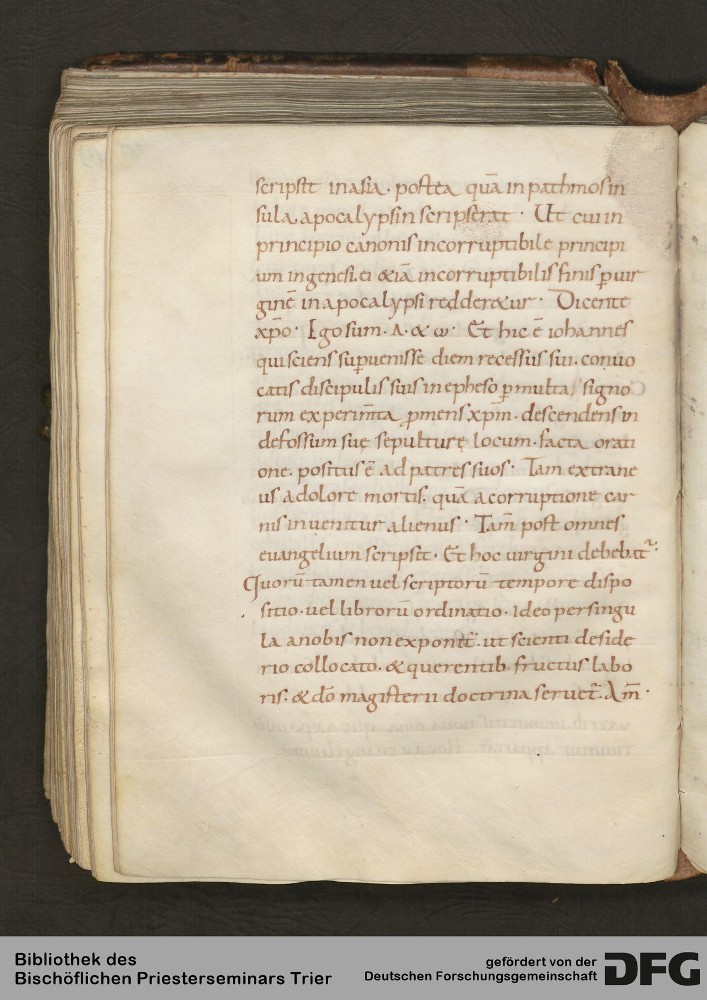 scripsit in asia · postea quā in pathmos in
sula apocalypsin scripserat · Ut cui in
principio canonis incorruptibile principi
um in genesi. ei &iā incorruptibilis finis ꝑ uir
ginē in apocalypsi redder&ur · Dicente
xp̄o · Ego sum · Λ · & ω · Et hic ē iohannes
qui sciens suꝑuenisse diem recessus sui. conuo
catis discipulis suis in epheso ꝑ multa signo
rum experim̄ta ꝓmens xp̄m · descendens in
defossum suę sepulturę locum · facta orati
one · positus ē ad patres suos · Tam extrane
us a dolore mortis. quā a corruptione car
nis inuenitur alienus · Tam̄ post omnes
euangelium scripsit · Et hoc uirgini debebat᷑ ·
Quorū tamen uel scriptorū tempore dispo
sitio · uel librorū ordinatio · ideo per singu
la a nobis non exponet᷑ · ut scienti deside
rio collocato · & querentib fructus labo
ris · & dō magisterii doctrina seruet᷑ · Am̄ ·
Bibliothek des
Bischöflichen Priesterseminars Trier
gefördert von der
Deutschen Forschungsgemeinschaft
DFG